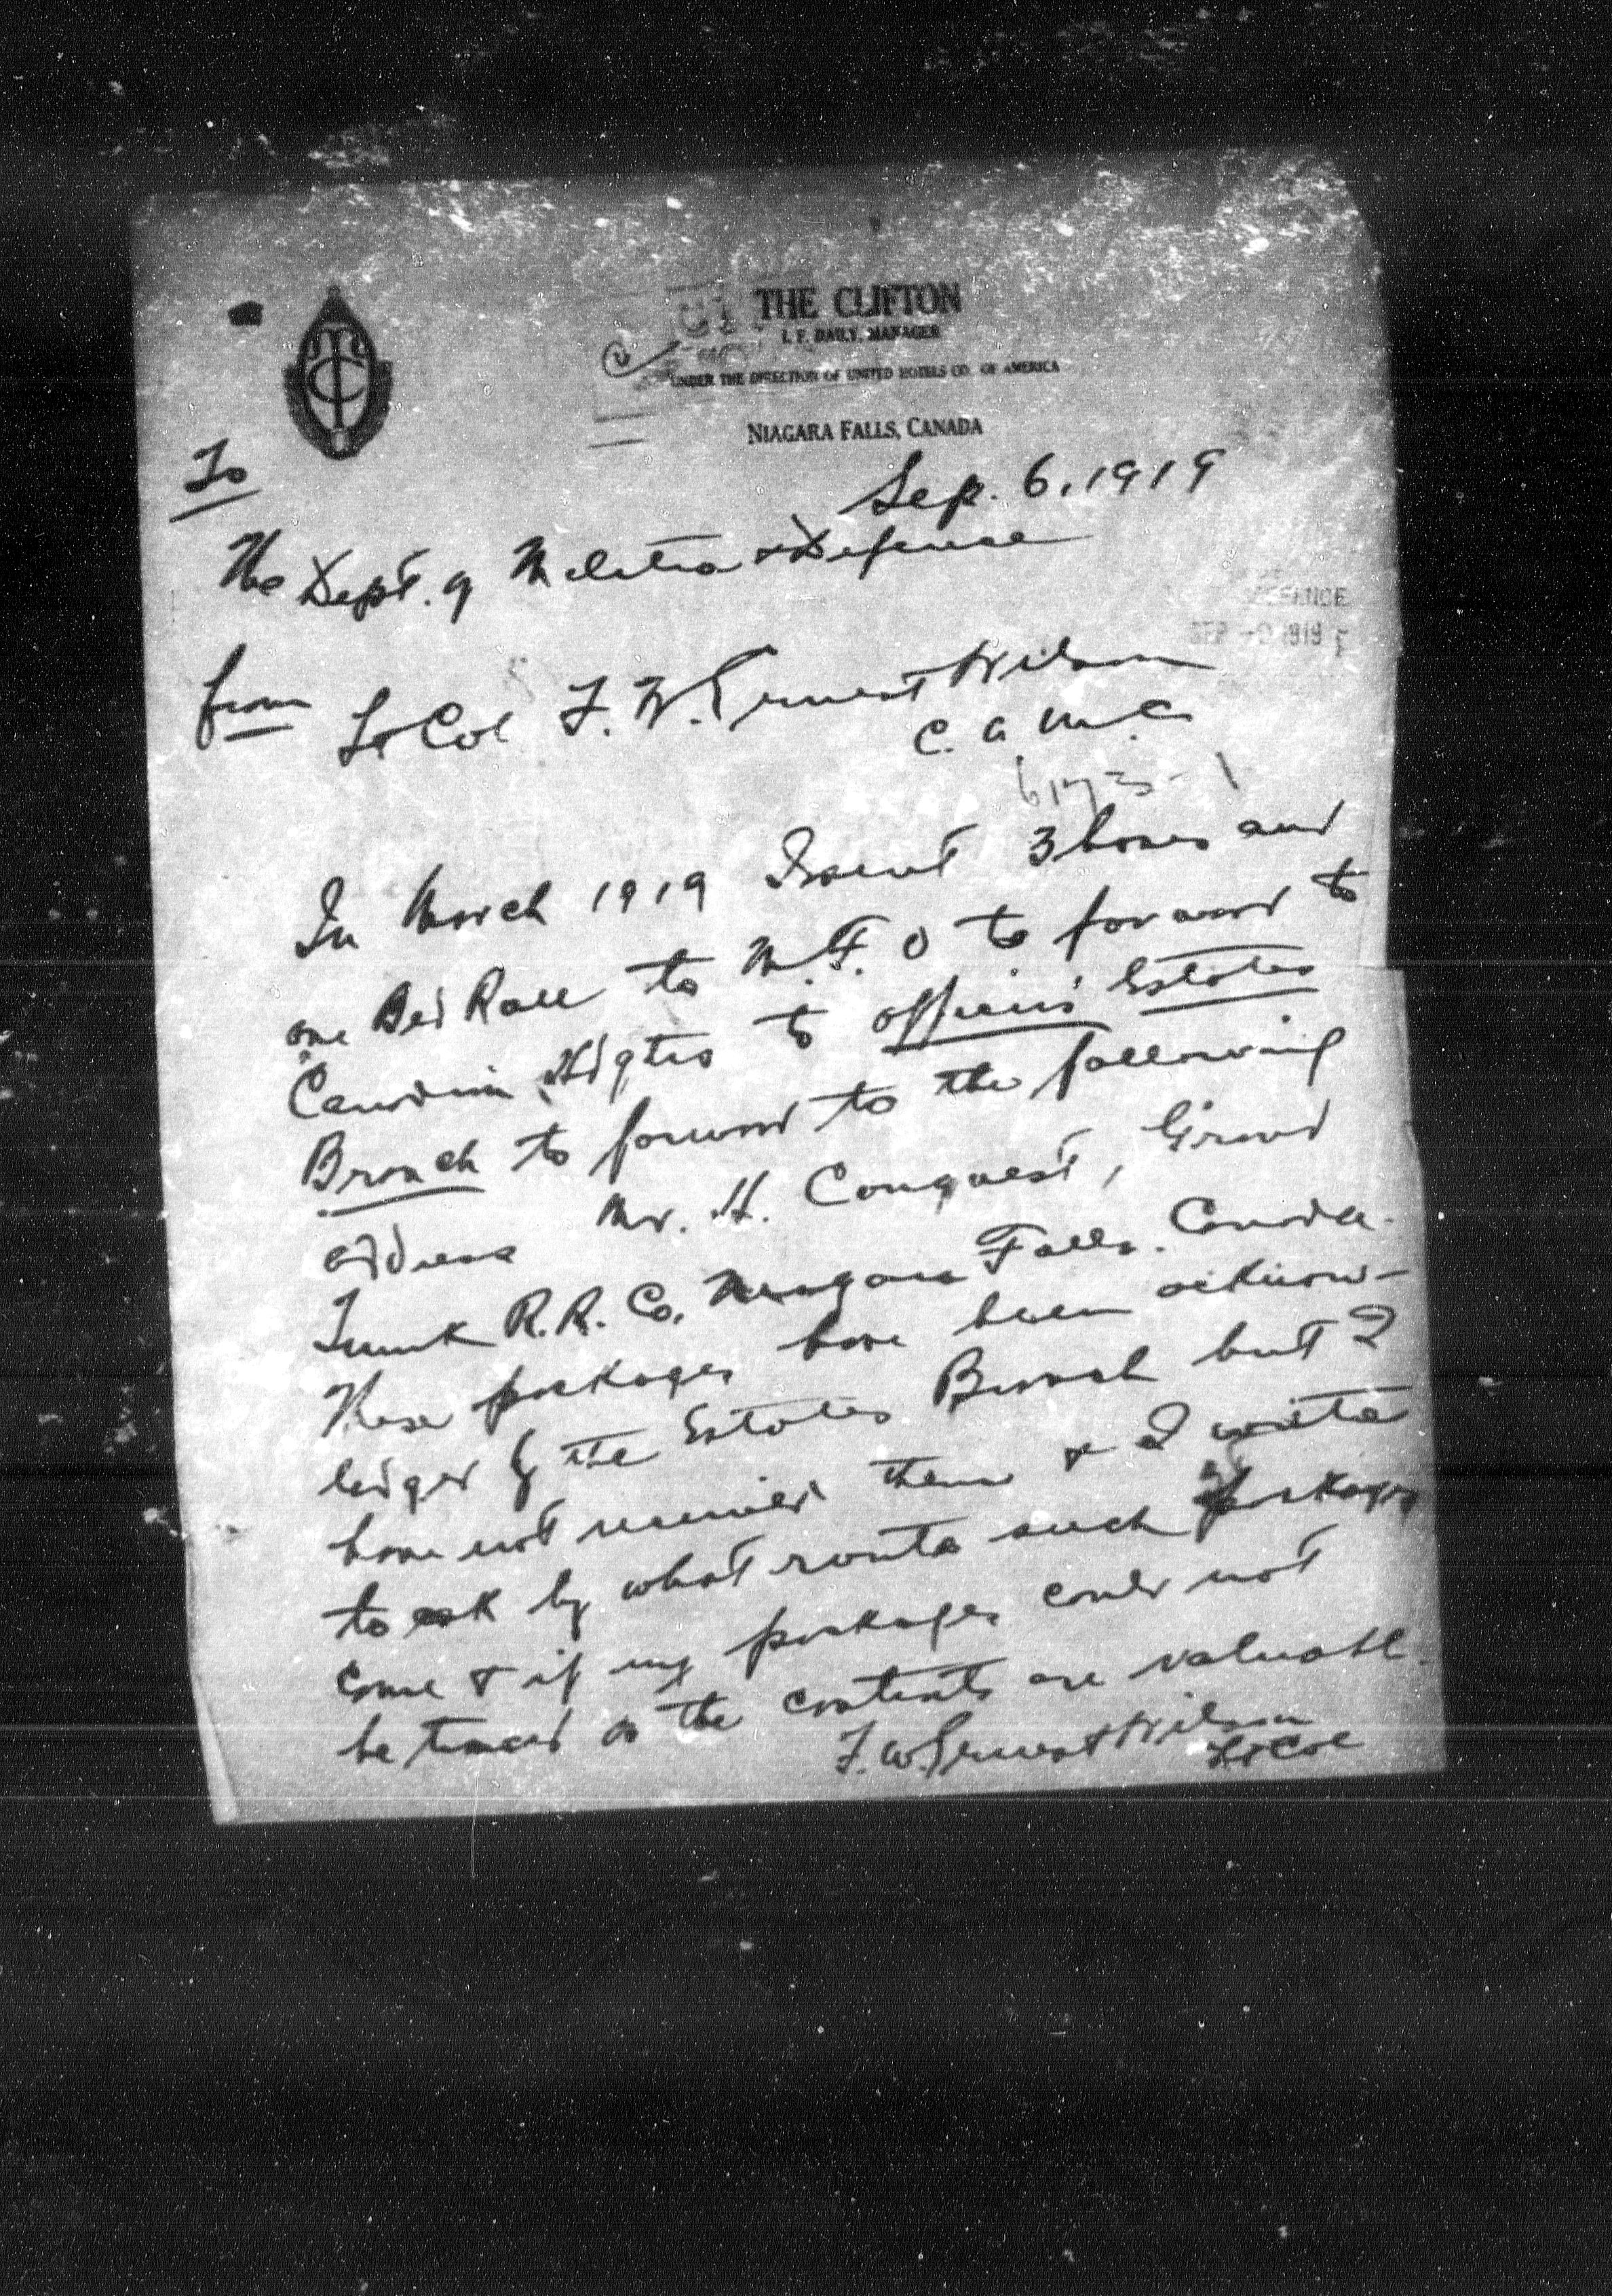 THE CLIFTON
L. F. DAILY, MANAGER
UNDER THE DIRECTION OF UNITED HOTELS CO. OF AMERICA
NIAGARA FALLS, CANADA
Sep. 6, 1919
To
The Dept. of Militia & Defense
DEFENCE
SEP 1919
from Lt Col F. W. Ernest Wilson
C. A. M. C.
6173-1
In March 1919 I sent 3 boxes and
one Bed Roll to M.F.O to forward to
Canadian Hdqtrs to officers' Estates
Branch to forward to the following
address Mr. H. Conquest, Grand
Trunk R.R. Co. Niagara Falls. Canada.
These packages have been acknow-
ledged by the Estates Branch but I
have not received them & I write
to ask by what route such packages
come & if my packages could not
be traced as the contents are valuable.
F. W. Ernest Wilson
Lt Col